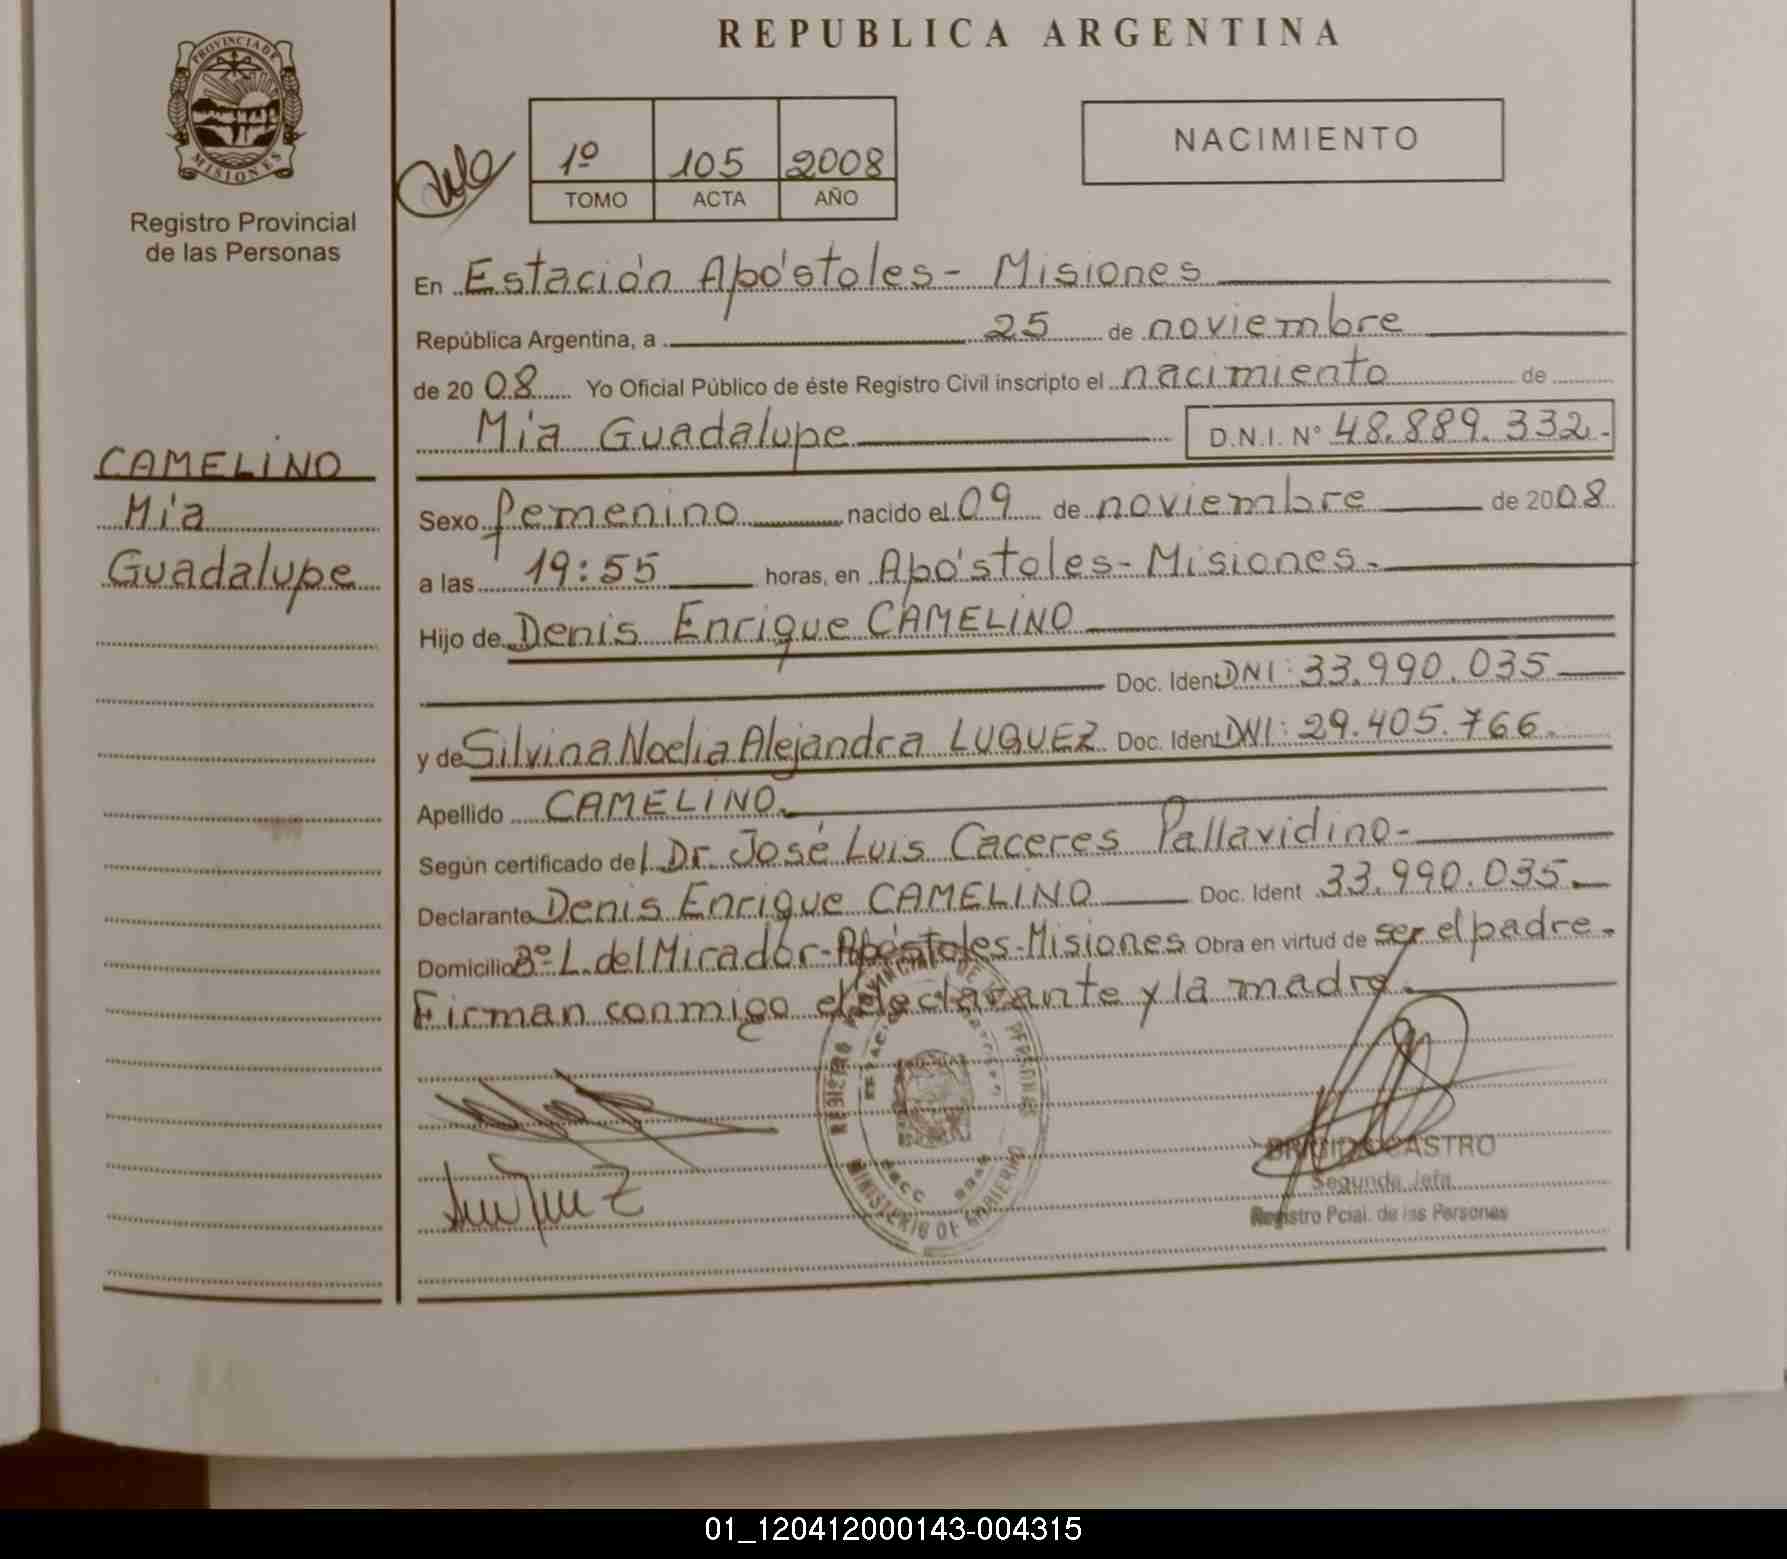 REPUBLICA ARGENTINA
PROVINCIA DE
MISIONES
Registro Provincial
de las Personas
1º 105 2008
TOMO ACTA AÑO
NACIMIENTO
CAMELINO
Mía
Guadalupe
En Estación Apóstoles - Misiones
República Argentina, a 25 de noviembre
de 2008 Yo Oficial Público de éste Registro Civil inscripto el nacimiento de
Mía Guadalupe D.N.I. Nº 48.889.332.-
Sexo femenino nacido el 09 de noviembre de 2008
a las 19:55 horas, en Apóstoles - Misiones.-
Hijo de Denis Enrique CAMELINO
Doc. Ident DNI: 33.990.035
y de Silvina Noelia Alejandra LUQUEZ Doc. Ident DNI: 29.405.766.
Apellido CAMELINO.
Según certificado del Dr. José Luis Caceres Pallavidino-
Declarante Denis Enrique CAMELINO Doc. Ident 33.990.035.
Domicilio Bº L. del Mirador - Apóstoles - Misiones Obra en virtud de ser el padre.
Firman conmigo el declarante y la madre.
REGISTRO PROVINCIAL DE PERSONAS
MINISTERIO DE GOBIERNO
CASTRO
Segunda Jefa
Registro Pcial. de las Personas
01_120412000143-004315